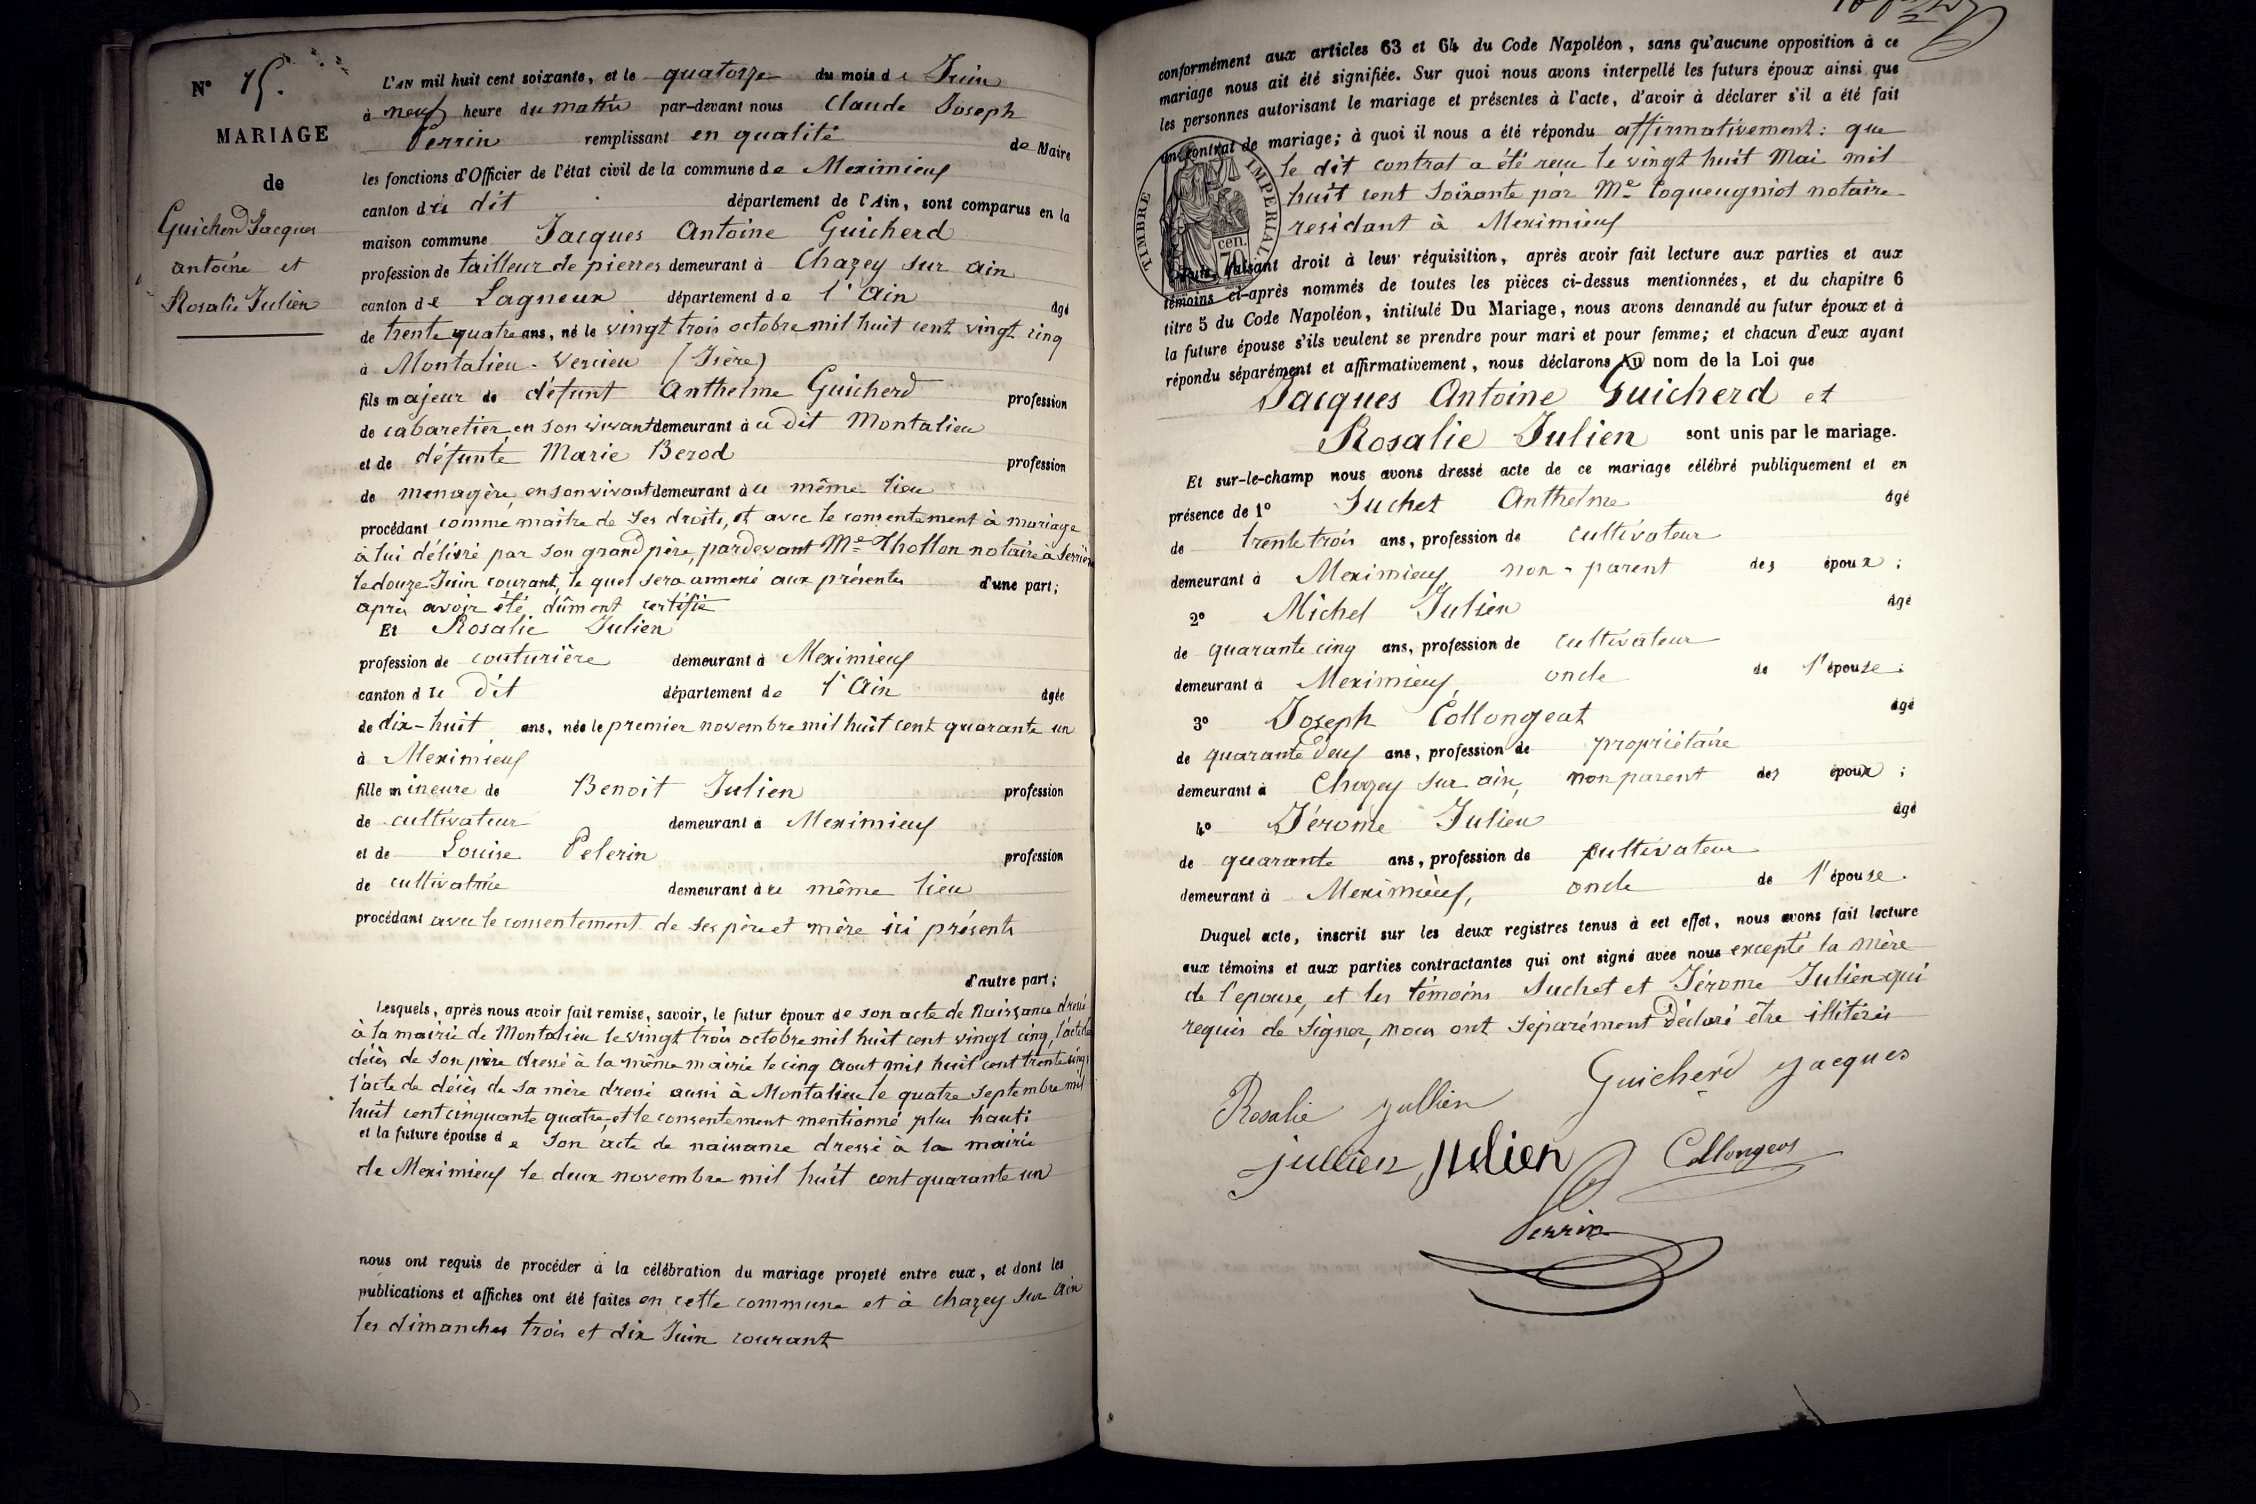 N° 15.
MARIAGE
de
Guicherd Jacques
antoine et
Rosalie Julien
L'AN mil huit cent soixante, et le quatorze du mois de Juin
à neuf heure du matin par-devant nous Claude Joseph
Perrin remplissant en qualité de Maire
les fonctions d'Officier de l'état civil de la commune de Meximieux
canton du dit département de l'Ain, sont comparus en la
maison commune Jacques Antoine Guicherd
profession de tailleur de pierres demeurant à Chazey sur ain
canton de Lagneux département de l'Ain âgé
de trente quatre ans, né le vingt trois octobre mil huit cent vingt cinq
à Montalieu-Vercieu (Isère)
fils majeur de défunt Anthelme Guicherd profession
de cabaretier, en son vivant demeurant à u dit Montalieu
et de défunte Marie Berod profession
de menagère, en son vivant demeurant à u même lieu
procédant comme maître de ses droits, et avec le consentement à mariage
à lui délivré par son grand père, pardevant Me Thollon notaire à
le douze Juin courant, le quel sera annexé aux présentes d'une part;
après avoir été dûment certifié
Et Rosalie Julien
profession de couturière demeurant à Meximieux
canton du dit département de l'Ain âgée
de dix-huit ans, née le premier novembre mil huit cent quarante un
à Meximieux
fille mineure de Benoit Julien profession
de cultivateur demeurant à Meximieux
et de Louise Pelerin profession
de cultivatrice demeurant à u même lieu
procédant avec le consentement de ses père et mère ici présents
d'autre part;
Lesquels, après nous avoir fait remise, savoir, le futur époux de son acte de naissance dressé
à la mairie de Montalieu le vingt trois octobre mil huit cent vingt cinq, l'acte de
décès de son père dressé à la même mairie le cinq aout mil huit cent trente cinq
l'acte de décès de sa mère dressé aussi à Montalieu le quatre septembre mil
huit cent cinquante quatre, et le consentement mentionné plus haut;
et la future épouse de son acte de naissance dressé à la mairie
de Meximieux le deux novembre mil huit cent quarante un
nous ont requis de procéder à la célébration du mariage projeté entre eux, et dont les
publications et affiches ont été faites en cette commune et à Chazey sur Ain
les dimanches trois et dix Juin courant
conformément aux articles 63 et 64 du Code Napoléon, sans qu'aucune opposition à ce
mariage nous ait été signifiée. Sur quoi nous avons interpellé les futurs époux ainsi que
les personnes autorisant le mariage et présentes à l'acte, d'avoir à déclarer s'il a été fait
un contrat de mariage; à quoi il nous a été répondu affirmativement: que
le dit contrat a été reçu le vingt huit Mai mil
huit cent soixante par Me Coqueugniot notaire
residant à Meximieux
TIMBRE IMPERIAL
70 cen.
Puis, faisant droit à leur réquisition, après avoir fait lecture aux parties et aux
témoins ci-après nommés de toutes les pièces ci-dessus mentionnées, et du chapitre 6
titre 5 du Code Napoléon, intitulé Du Mariage, nous avons demandé au futur époux et à
la future épouse s'ils veulent se prendre pour mari et pour femme; et chacun d'eux ayant
répondu séparément et affirmativement, nous déclarons Au nom de la Loi que
Jacques Antoine Guicherd et
Rosalie Julien sont unis par le mariage.
Et sur-le-champ nous avons dressé acte de ce mariage célébré publiquement et en
présence de 1° Suchet Anthelme âgé
de trente trois ans, profession de cultivateur
demeurant à Meximieux, non-parent des époux;
2° Michel Julien âgé
de quarante cinq ans, profession de cultivateur
demeurant à Meximieux, oncle de l'épouse;
3° Joseph Collongeat âgé
de quarante deux ans, profession de propriétaire
demeurant à Chazey sur ain, non parent des époux;
4° Jérome Julien âgé
de quarante ans, profession de cultivateur
demeurant à Meximieux, oncle de l'épouse.
Duquel acte, inscrit sur les deux registres tenus à cet effet, nous avons fait lecture
aux témoins et aux parties contractantes qui ont signé avec nous excepté la mère
de l'epouse, et les témoins Suchet et Jérome Julien qui
requis de signer, nous ont séparément déclaré être illitérés
Guicherd Jacques
Rosalie Jullien
Jullien Julien Collongeat
Perrin